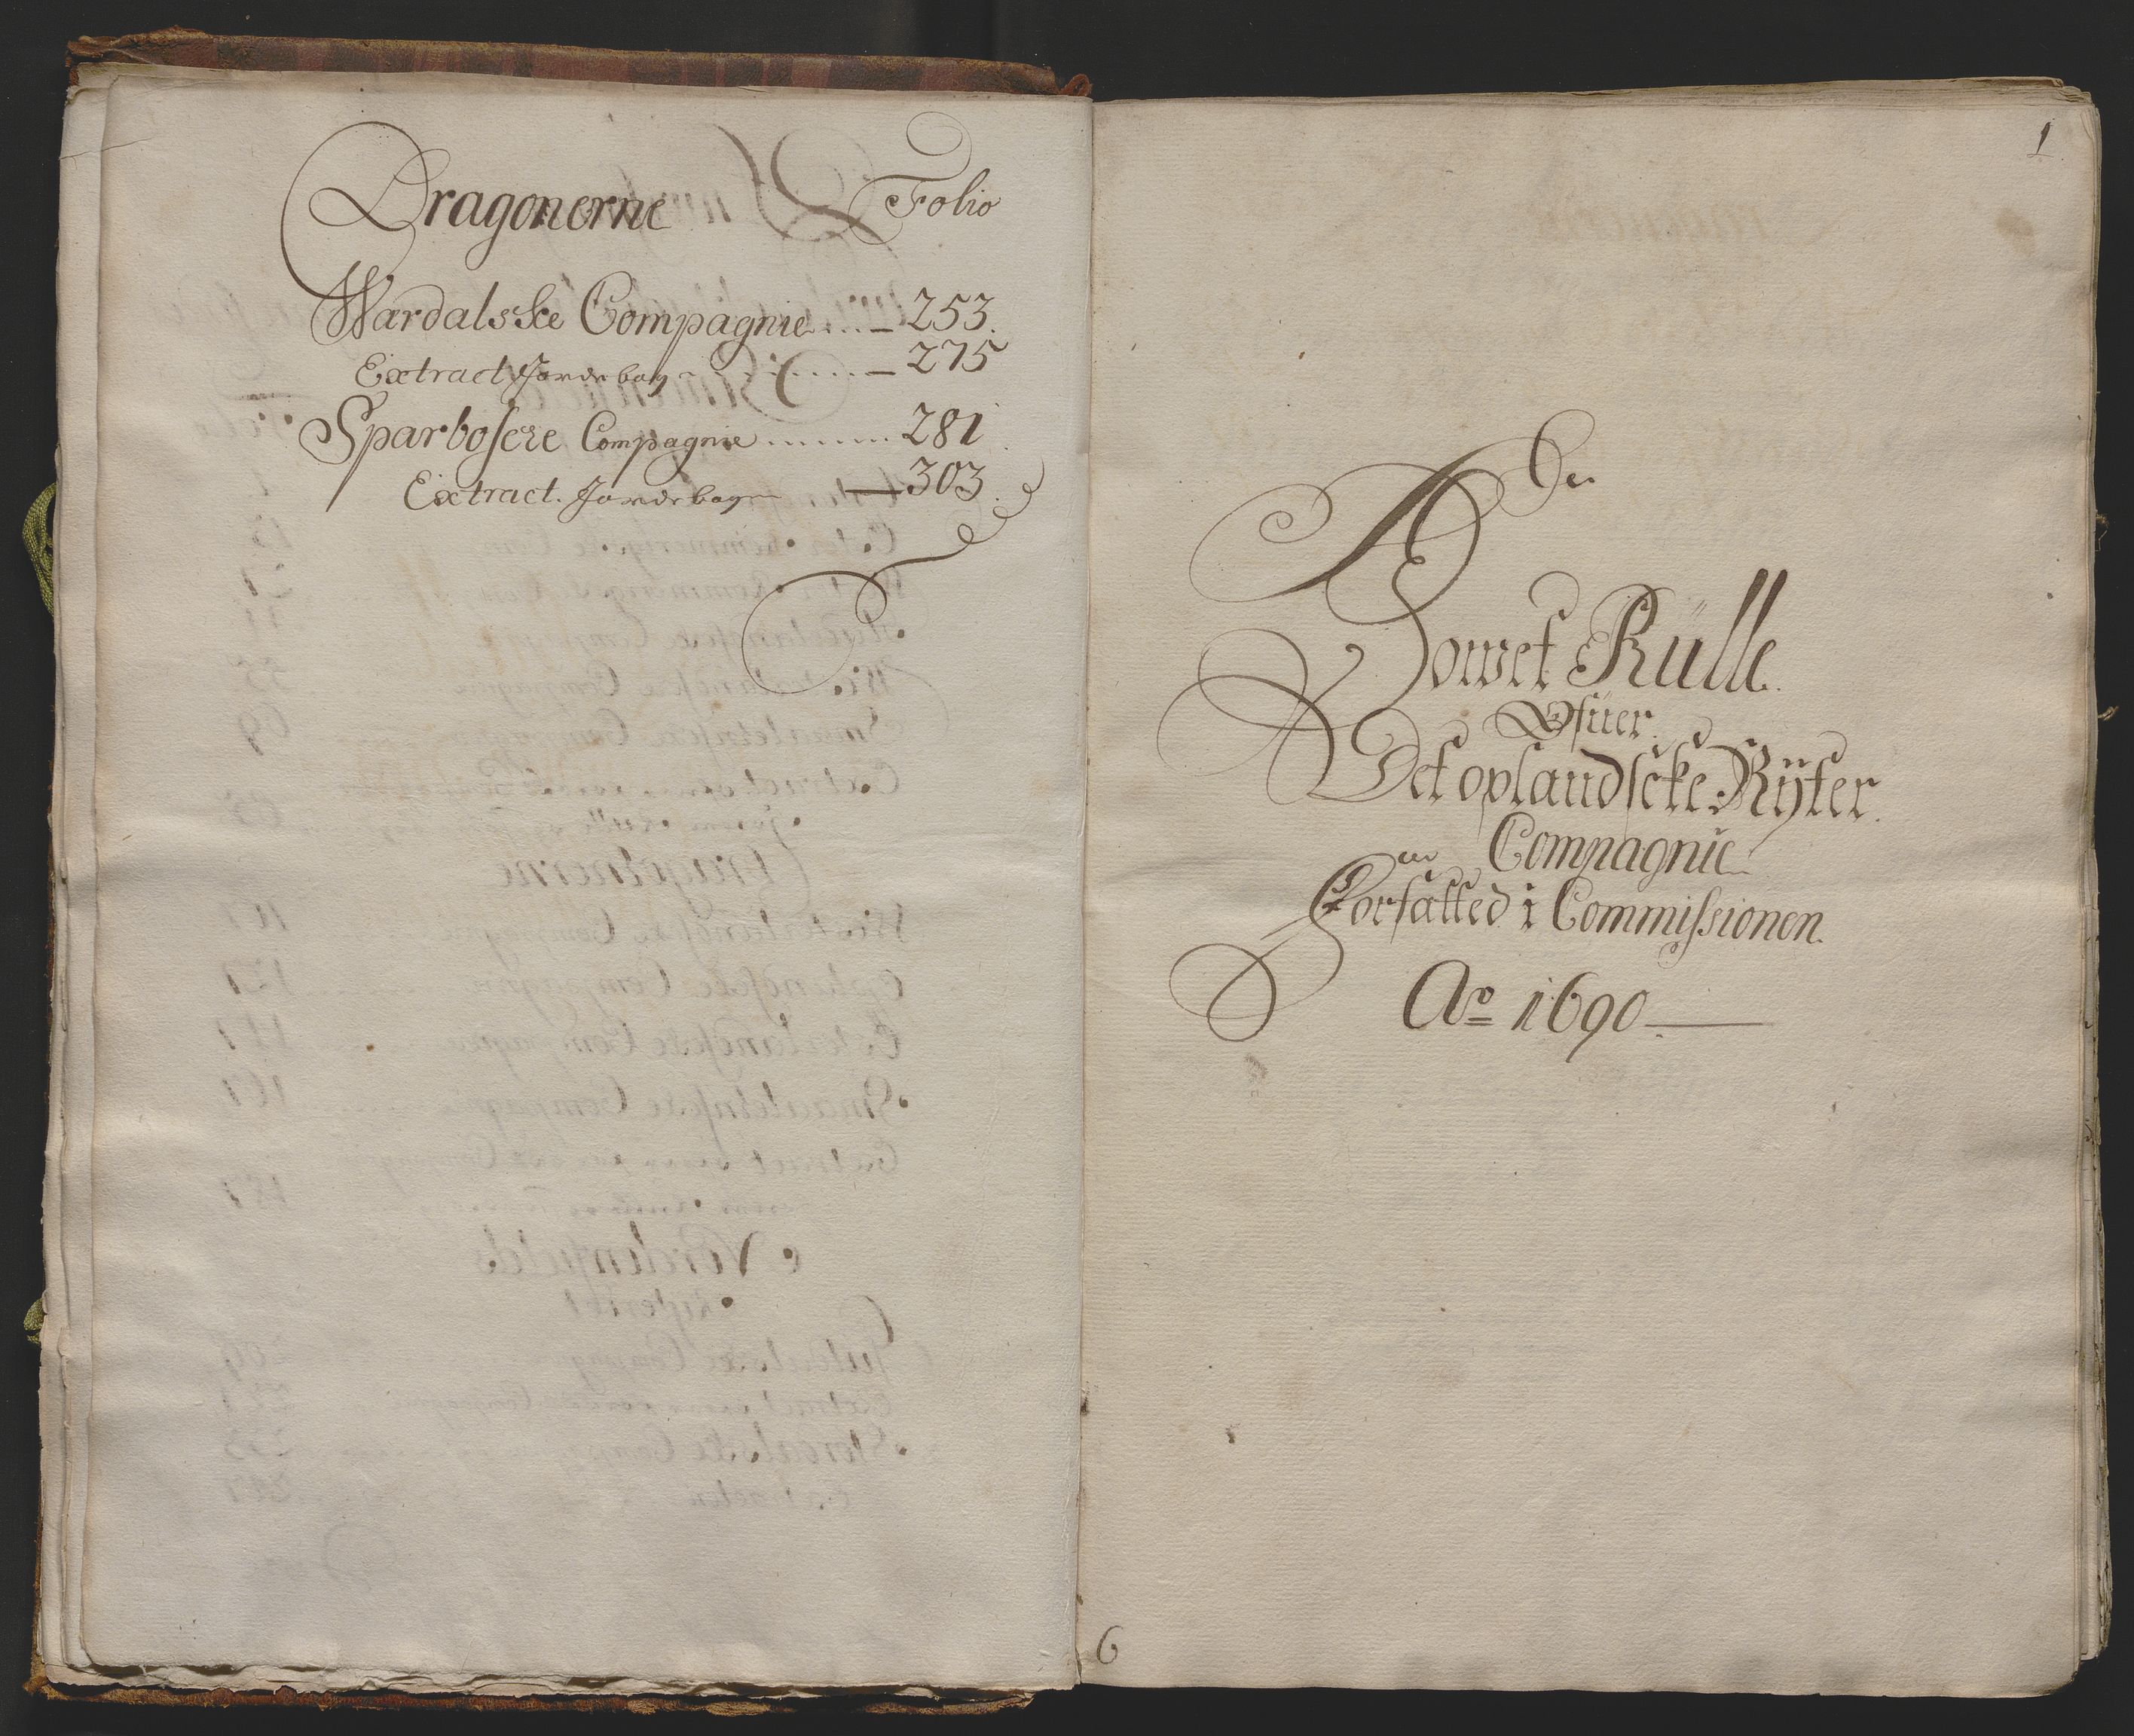 Dragonerne Folio
Wærdalske Compagnie .... 253.
Extract Jordebog ........ 275
Sparboscke Compagnie ........ 281
Extract. Jordebogen 303.
1
En
Howet Rülle
Ofüer.
Det oplandscke Rÿter.
Compagnie
Forfatted i Commissionen.
Ao 1690
6